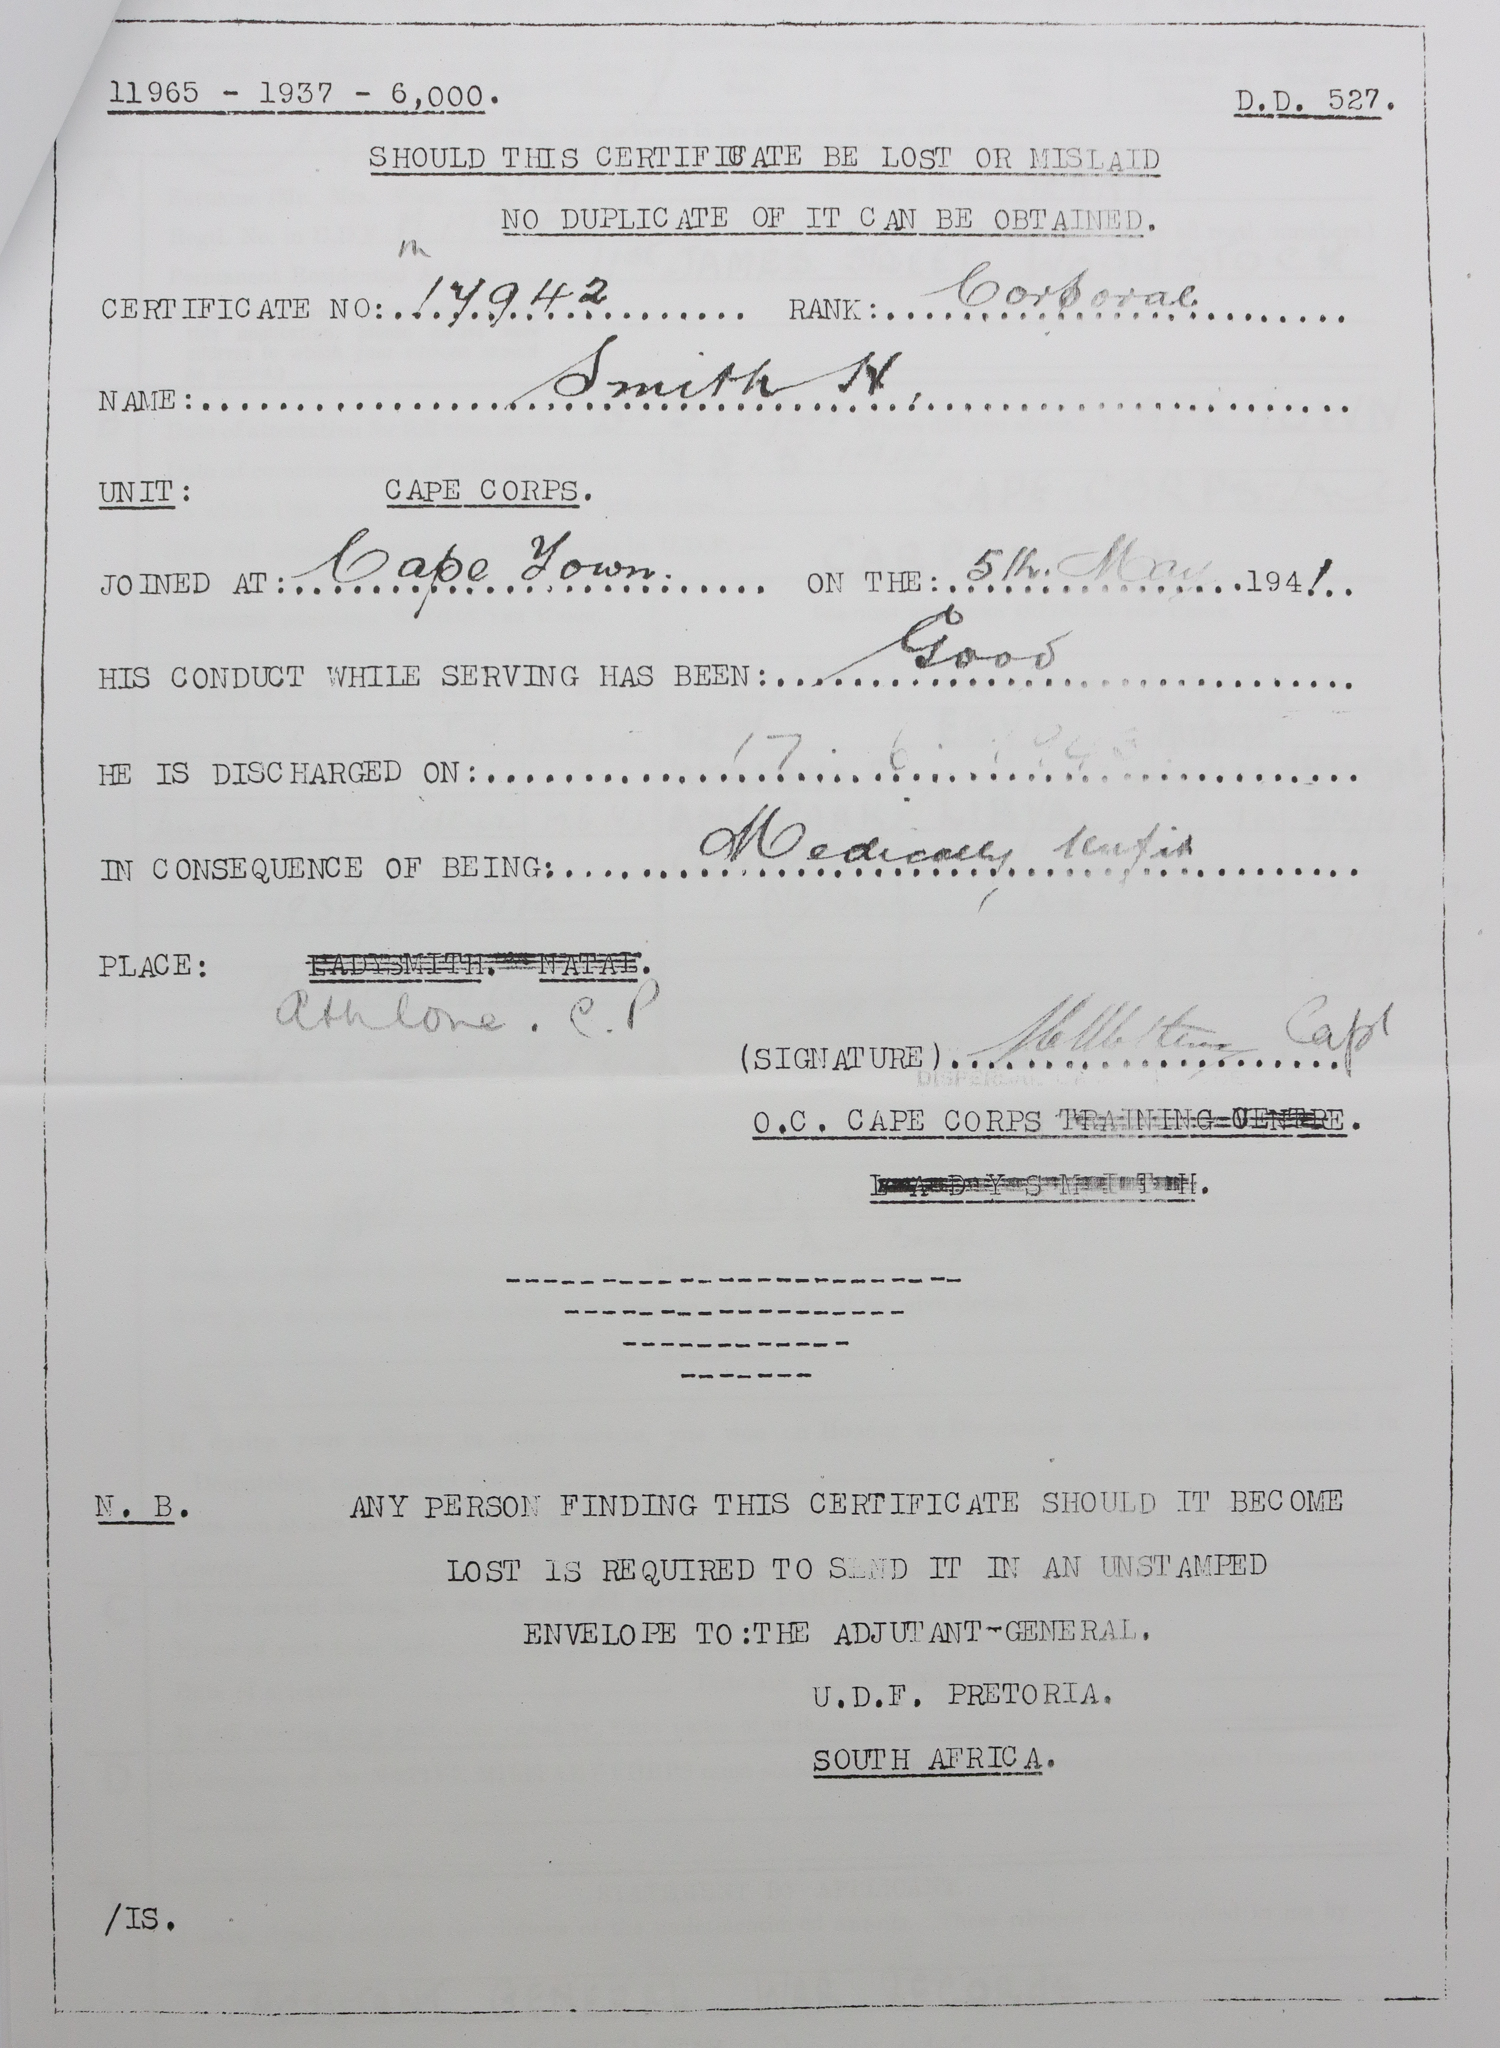 11965 - 1937 - 6,000. D.D. 527.
SHOULD THIS CERTIFICATE BE LOST OR MISLAID
NO DUPLICATE OF IT CAN BE OBTAINED.
m
CERTIFICATE NO: 17942 RANK: Corporal
NAME: Smith H.
UNIT: CAPE CORPS.
JOINED AT: Cape Town. ON THE: 5th. May 1941.
HIS CONDUCT WHILE SERVING HAS BEEN: Good
HE IS DISCHARGED ON: 17. 6. 1943
IN CONSEQUENCE OF BEING: Medically unfit
PLACE: LADYSMITH. NATAL.
Athlone. C.P
(SIGNATURE) Capt
O.C. CAPE CORPS TRAINING CENTRE.
LADYSMITH.
N. B. ANY PERSON FINDING THIS CERTIFICATE SHOULD IT BECOME
LOST IS REQUIRED TO SEND IT IN AN UNSTAMPED
ENVELOPE TO:THE ADJUTANT-GENERAL.
U.D.F. PRETORIA.
SOUTH AFRICA.
/IS.